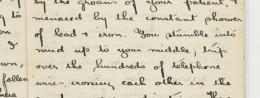 by the groans of your patient, &
g to menaced by the constant shower
of lead & iron. You plumble into
I mud up to your middle, trip
own, over the hundreds of telephone
fallen wires, crossing each other in the